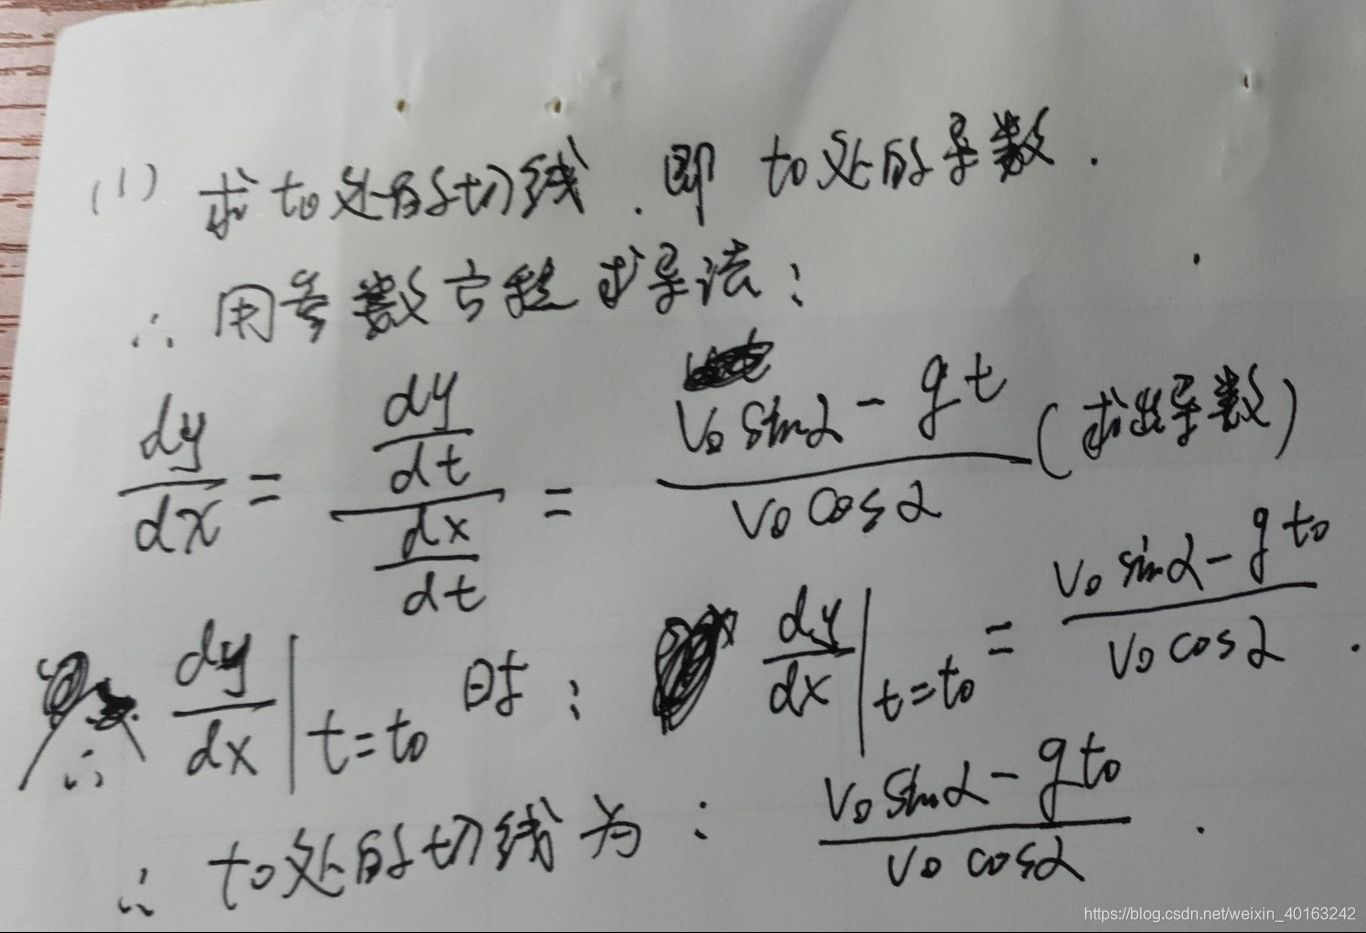 (1) 求t₀处的切线.即t₀处的导数.
∴用参数方程求导法:
dy/dx = (dy/dt)/(dx/dt) = (v₀sinα-gt)/(v₀cosα) (求出导数)
∴ dy/dx|t=t₀ 时: dy/dx|t=t₀ = (v₀sinα-gt₀)/(v₀cosα).
∴ t₀处的切线为: (v₀sinα-gt₀)/(v₀cosα).
https://blog.csdn.net/weixin_40163242